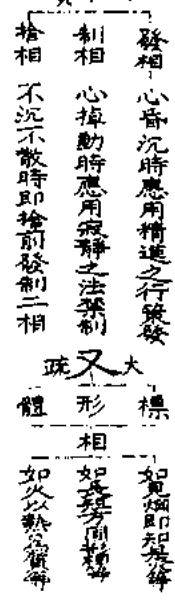 發相 心昏沉時應用精進之行策發
制相 心掉動時應用寂靜之法禁制
捨相 不沉不散時即捨前發制二相
又
大疏
標 形 體
相
如見烟即知是火等
如長短方圓相等
如火以熱為相等